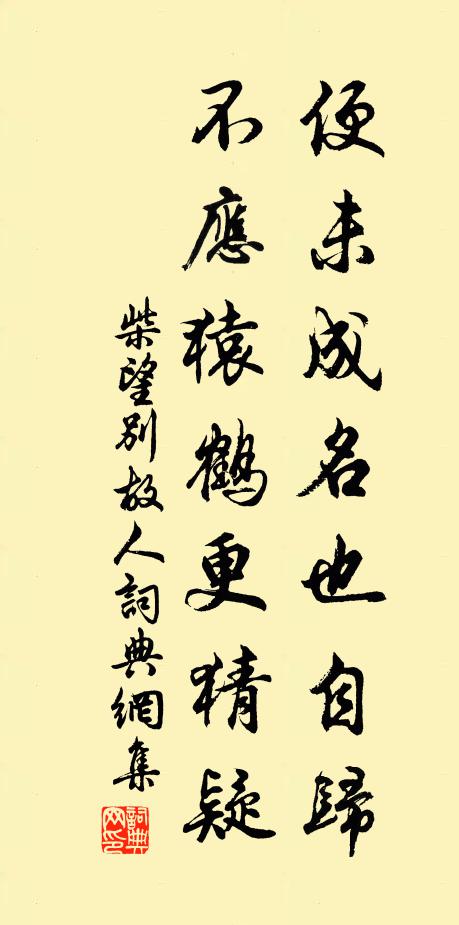 便未成名也自歸
不應猿鶴更猜疑
柴望別故人詞典網集
詞典網印